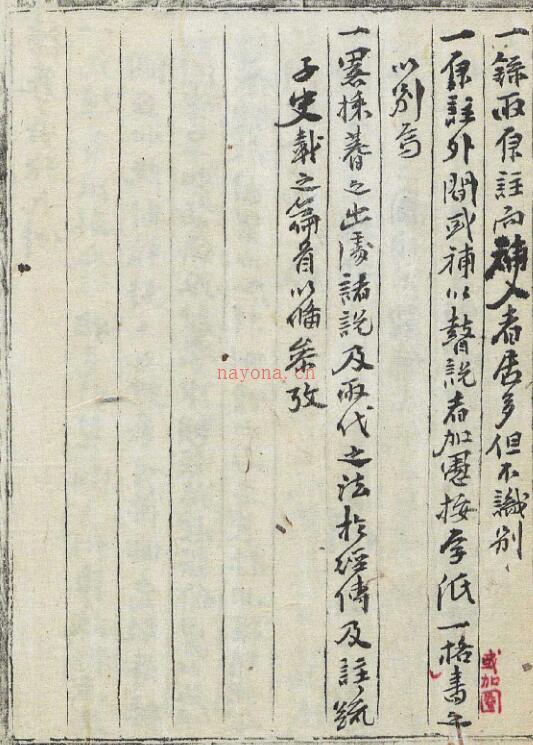 一 錄兩原註而輔入者居多但不識別
一 原註外間或補以瞽說者加圈按字低一格書之
或加圈
以別焉
一 畧採蓍之出處諸說及兩代之法於經傳及註疏
子史載之篇首以備參攷
nayona.cn